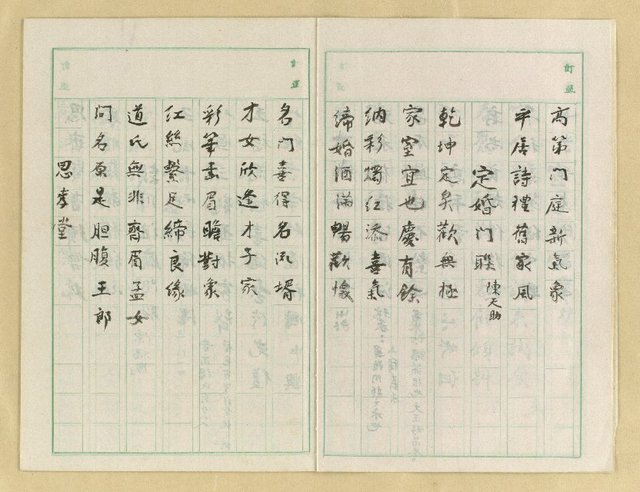 高第門庭新氣象
平居詩禮舊家風
定婚門聯 陳天助
乾坤定矣歡無極
家室宜也慶有餘
納彩燭紅添喜氣
締婚酒滿暢歡懷
名門喜得名流壻
才女欣逢才子家
彩筆畫眉瞻對象
紅絲繫足締良緣
道氏無非齊眉孟女
問名原是胆腹王郎
思孝堂